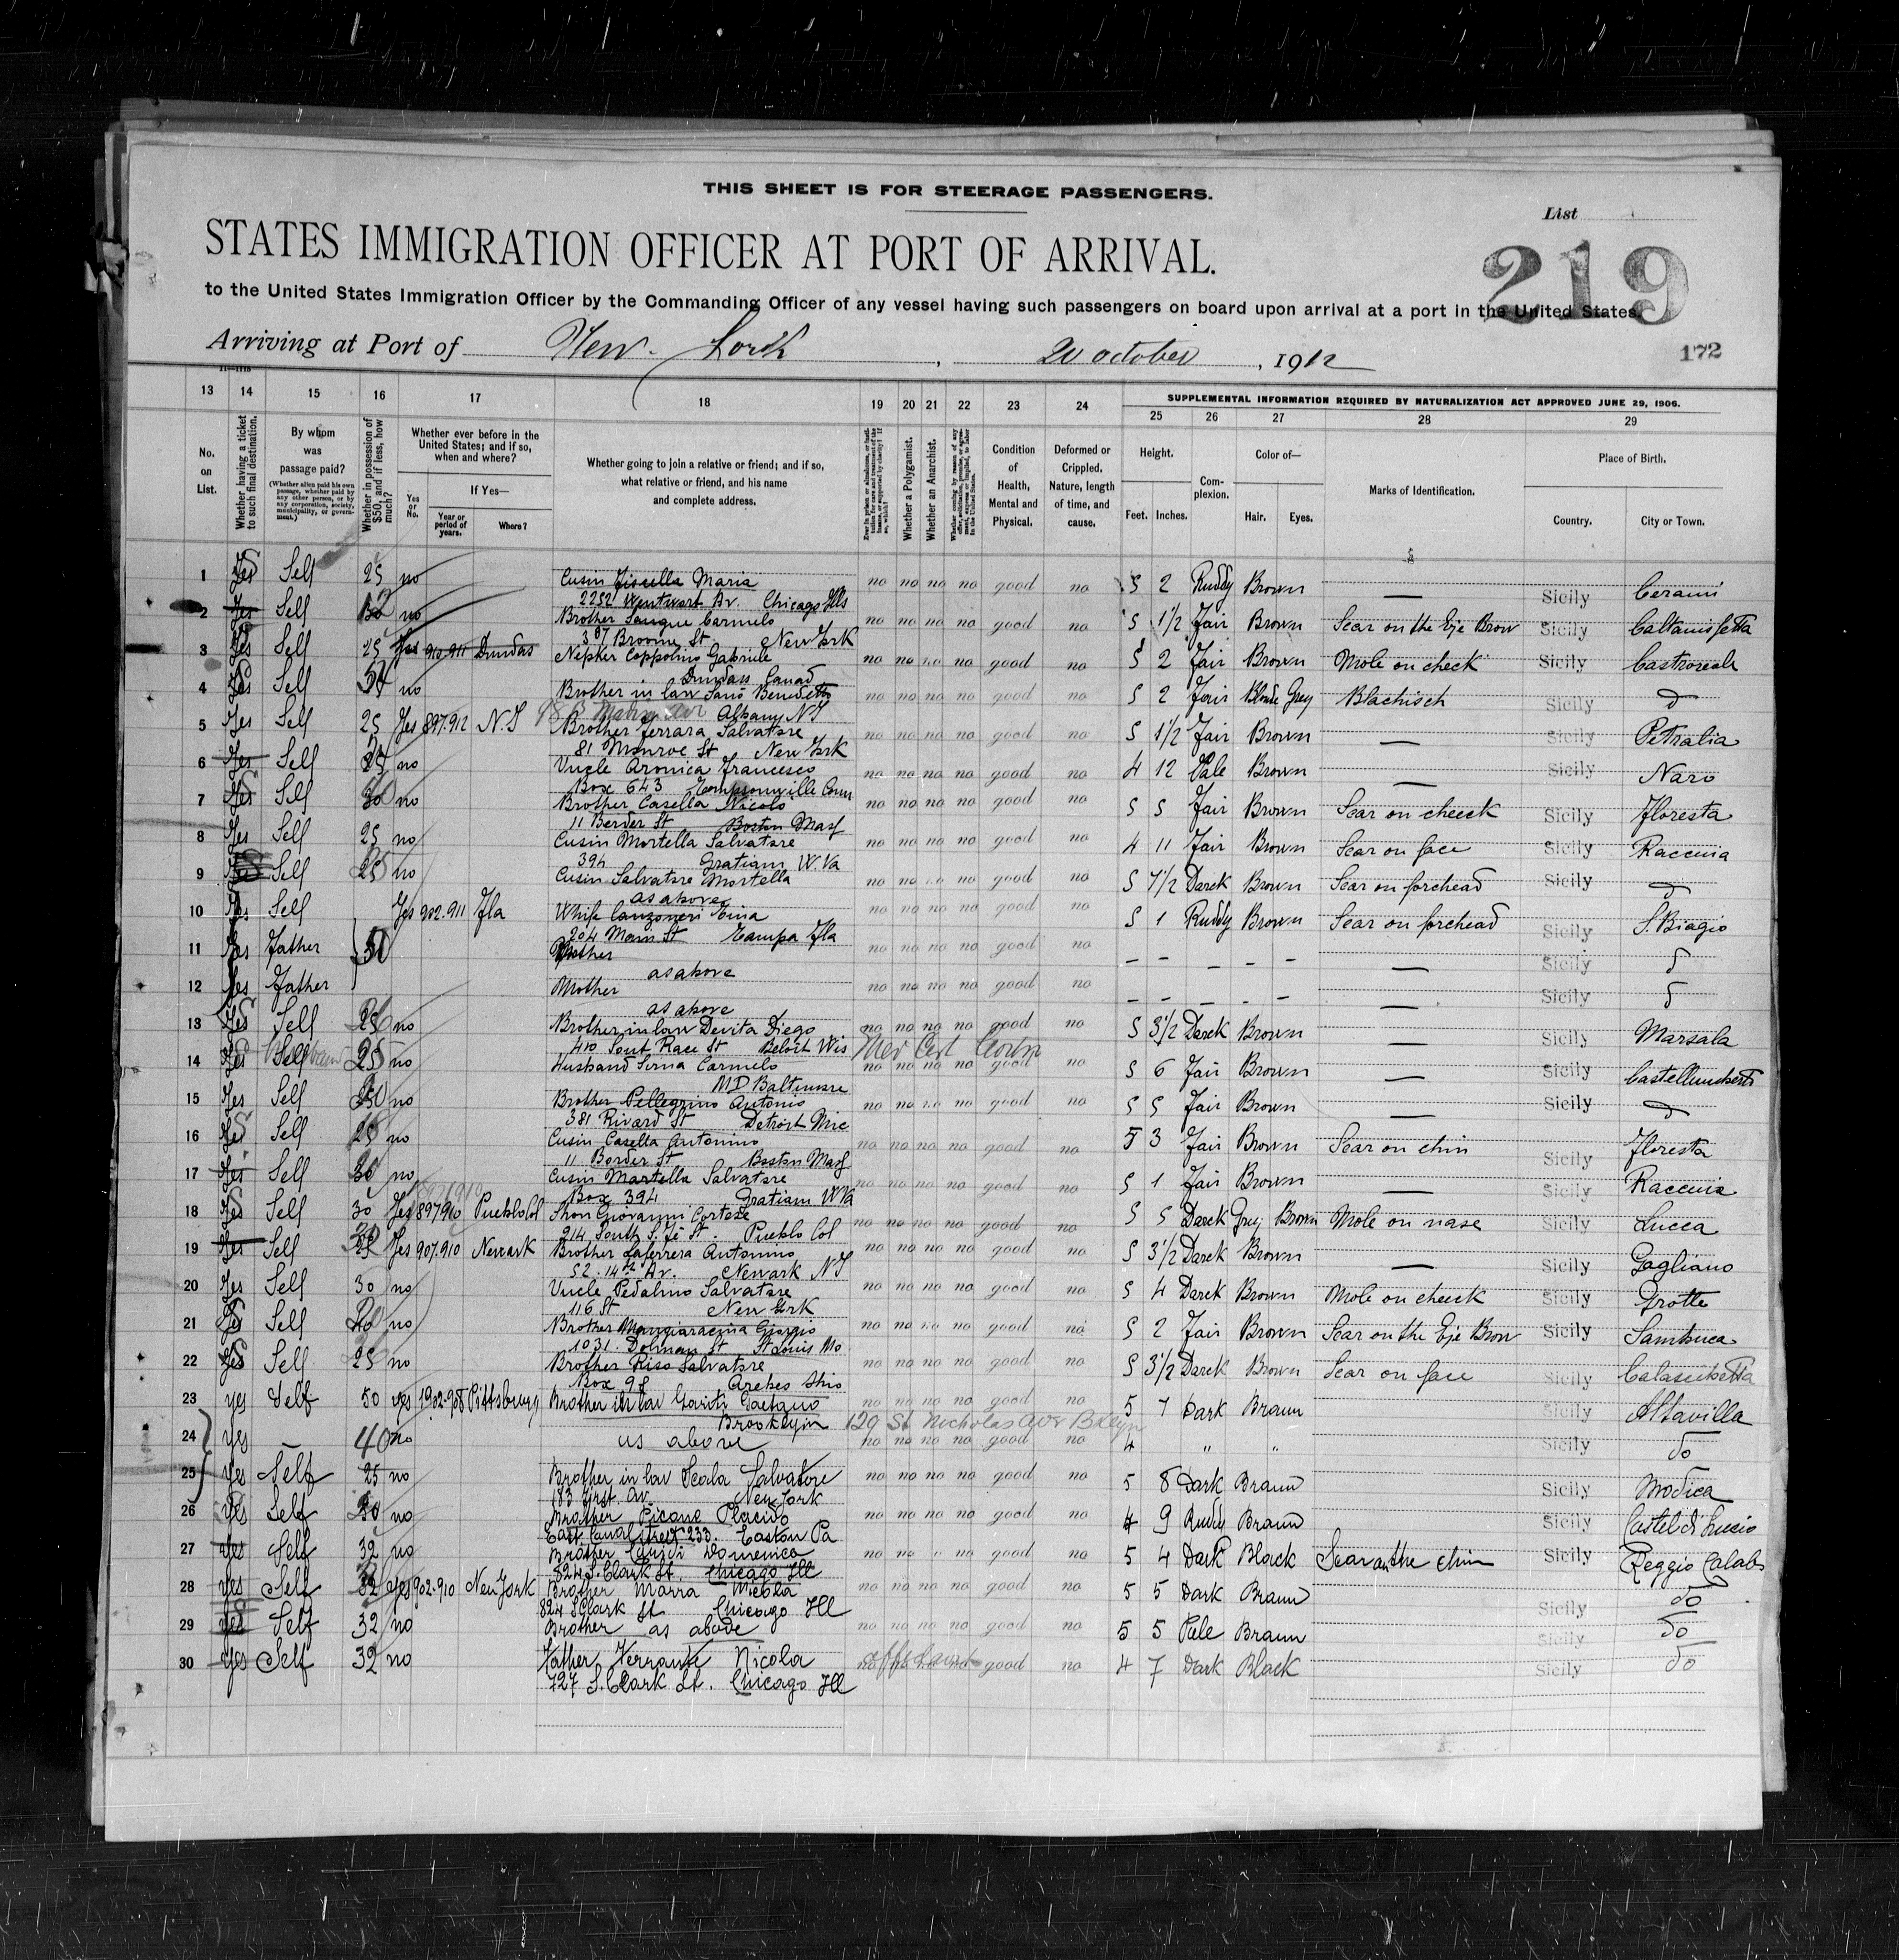 THIS SHEET IS FOR STEERAGE PASSENGERS.
List
STATES IMMIGRATION OFFICER AT PORT OF ARRIVAL.
219
to the United States Immigration Officer by the Commanding Officer of any vessel having such passengers on board upon arrival at a port in the United States.
Arriving at Port of New York, 20 october, 1912
172
13 14 15 16 17 18 19 20 21 22 23 24 25 26 27 28 29
SUPPLEMENTAL INFORMATION REQUIRED BY NATURALIZATION ACT APPROVED JUNE 29, 1906.
No. on List.
Whether having a ticket to such final destination.
By whom was passage paid?
(Whether alien paid his own passage, whether paid by any other person, or by any corporation, society, municipality, or government.)
Whether in possession of $50, and if less, how much?
Whether ever before in the United States; and if so, when and where?
Yes or No.
If Yes—
Year or period of years.
Where?
Whether going to join a relative or friend; and if so, what relative or friend, and his name and complete address.
Whether a Polygamist.
Whether an Anarchist.
Condition of Health, Mental and Physical.
Deformed or Crippled. Nature, length of time, and cause.
Height.
Feet. Inches.
Complexion.
Color of—
Hair. Eyes.
Marks of Identification.
Place of Birth.
Country. City or Town.
1 Yes Self 25 no Cusin Fiscella Maria no no no no good no 5 2 Ruddy Brown — Sicily Cerami
2252 Wentwort Av. Chicago Ills
2 Yes Self no Brother Sangue Carmelo no no no no good no 5 1/2 Fair Brown Scar on the Eje Brow Sicily Caltanissetta
387 Broome St New York
3 Yes Self 25 Yes 910.911 Dundas Nepher Coppolino Gabriele no no no no good no 5 2 Fair Brown Mole on check Sicily Castroreale
Dundas Canad
4 Yes Self no Brother in law Benedetto no no no no good no 5 2 Fair Blonde Grey Sicily
Albany
5 Yes Self 25 Yes 897.912 Brother Ferrara Salvatore no no no no good no 5 1 1/2 Fair Brown — Sicily Petralia
81 Monroe St New York
6 Yes Self no Uncle Aronica Francesco no no no no good no 4 12 Pale Brown — Sicily Naro
Box 643 Tompsonville Conn
7 Yes Self 30 no Brother Casella Nicolo no no no no good no 5 5 Fair Brown Scar on cheeck Sicily Floresta
11 Border St Boston Mass
8 Yes Self 25 no Cusin Mortella Salvatore no no no no good no 4 11 Fair Brown Scar on face Sicily Raccuia
394 Gratiam W Va
9 Self 25 no Cusin Salvatore Mortella no no no no good no 5 Darck Brown Scar on forchead Sicily
as above
10 Yes Self Yes 902.911 Fla Whife Canzoneri no no no no good no 5 1 Ruddy Brown Scar on forchead Sicily S. Biagio
204 Main St Tampa Fla
11 Yes Father 50 Mother no no no no good no - - - - - — Sicily
as above
12 Yes Father Mother no no no no good no - - - - - — Sicily
as above
13 Yes Self 25 no Brother in law Devita Diego no no no no good no 5 3 1/2 Darck Brown — Sicily Marsala
410 Sout Race St Beloit Wis
14 Yes Self 25 no Husband Carmelo no no no no good no 5 6 Fair Brown — Sicily
MD Baltimore
15 Yes Self no Brother Pellegrino Antonio no no no no good no 5 5 Fair Brown — Sicily
381 Rivard St Detroit Mic
16 Yes Self 25 no Cusin Casella Antonino no no no no good no 5 3 Fair Brown Scar on chin Sicily Floresta
11 Border St Boston Mass
17 Yes Self 30 no Cusin Martella Salvatore no no no no good no 5 1 Fair Brown — Sicily Raccuia
Box 394 Gratiam W Va
18 Yes Self 30 Yes 897.910 Pueblo Col Giovanni Cortese no no no no good no 5 5 Darck Grey Brown Mole on nase Sicily Lucca
214 South S. Fè St. Pueblo Col
19 Yes Self Yes 907.910 Newark Brother Laferrera Antonino no no no no good no 5 3 1/2 Darck Brown — Sicily Gagliano
52. 14th Av. Newark
20 Yes Self 30 no Uncle Pedalino Salvatore no no no no good no 5 4 Darck Brown Mole on cheeck Sicily Grotte
116 St New York
21 Yes Self 20 no Brother Mangiaracina Giorgio no no no no good no 5 2 Fair Brown Scar on the Eje Brow Sicily Sambuca
1031. Dolman St St Louis Mo
22 Yes Self 25 no Brother Riso Salvatore no no no no good no 5 3 1/2 Darck Brown Scar on face Sicily Calascibetta
Box 98
23 yes Self 50 yes 1902-908 Pittsburg Brother in law Gaetano no no no no good no 5 7 Dark Braun Altavilla
Brooklyn 129 St Nicholas Ave Bklyn
24 yes – 40 no as above no no no no good no 4 " " Sicily do
25 yes Self 25 no Brother in law Scala Salvatore no no no no good no 5 8 Dark Braun Sicily Modica
183 First Av. New York
26 Yes Self 30 no Brother Picone Placido no no no no good no 4 9 Ruddy Braun Sicily Castel di Lucio
East Canal street 233. Easton Pa
27 yes Self 32 no Brother Domenica no no no good no 5 4 Dark Black Scar on the chin Sicily Reggio Calab
824 S. Clark St. Chicago Ill
28 yes Self 32 yes 902-910 New York Brother Marra Nicola no no no no good no 5 5 Dark Braun Sicily do
824 S Clark St Chicago Ill
29 yes Self 32 no Brother as above no no no no good no 5 5 Pale Braun Sicily do
30 Yes Self 32 no Father Ferrante Nicola no no no no good no 4 7 Dark Black Sicily do
727 S. Clark St. Chicago Ill